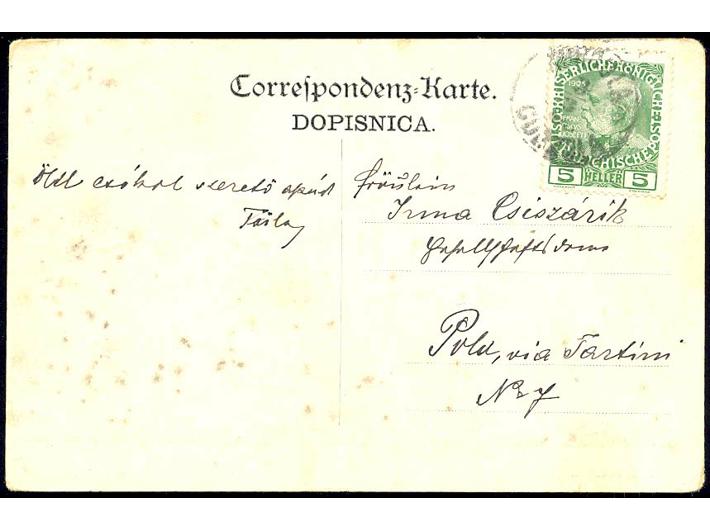 Correspondenz-Karte.
DOPISNICA.
Ölel csókol szerető apád
Fräulein
Irma Csiszárik
Gesellschaftsdame
Pola, via Tartini
No 7
KAISERLICHE KÖNIGLICHE
ÖSTERREICHISCHE POST
5 HELLER 5